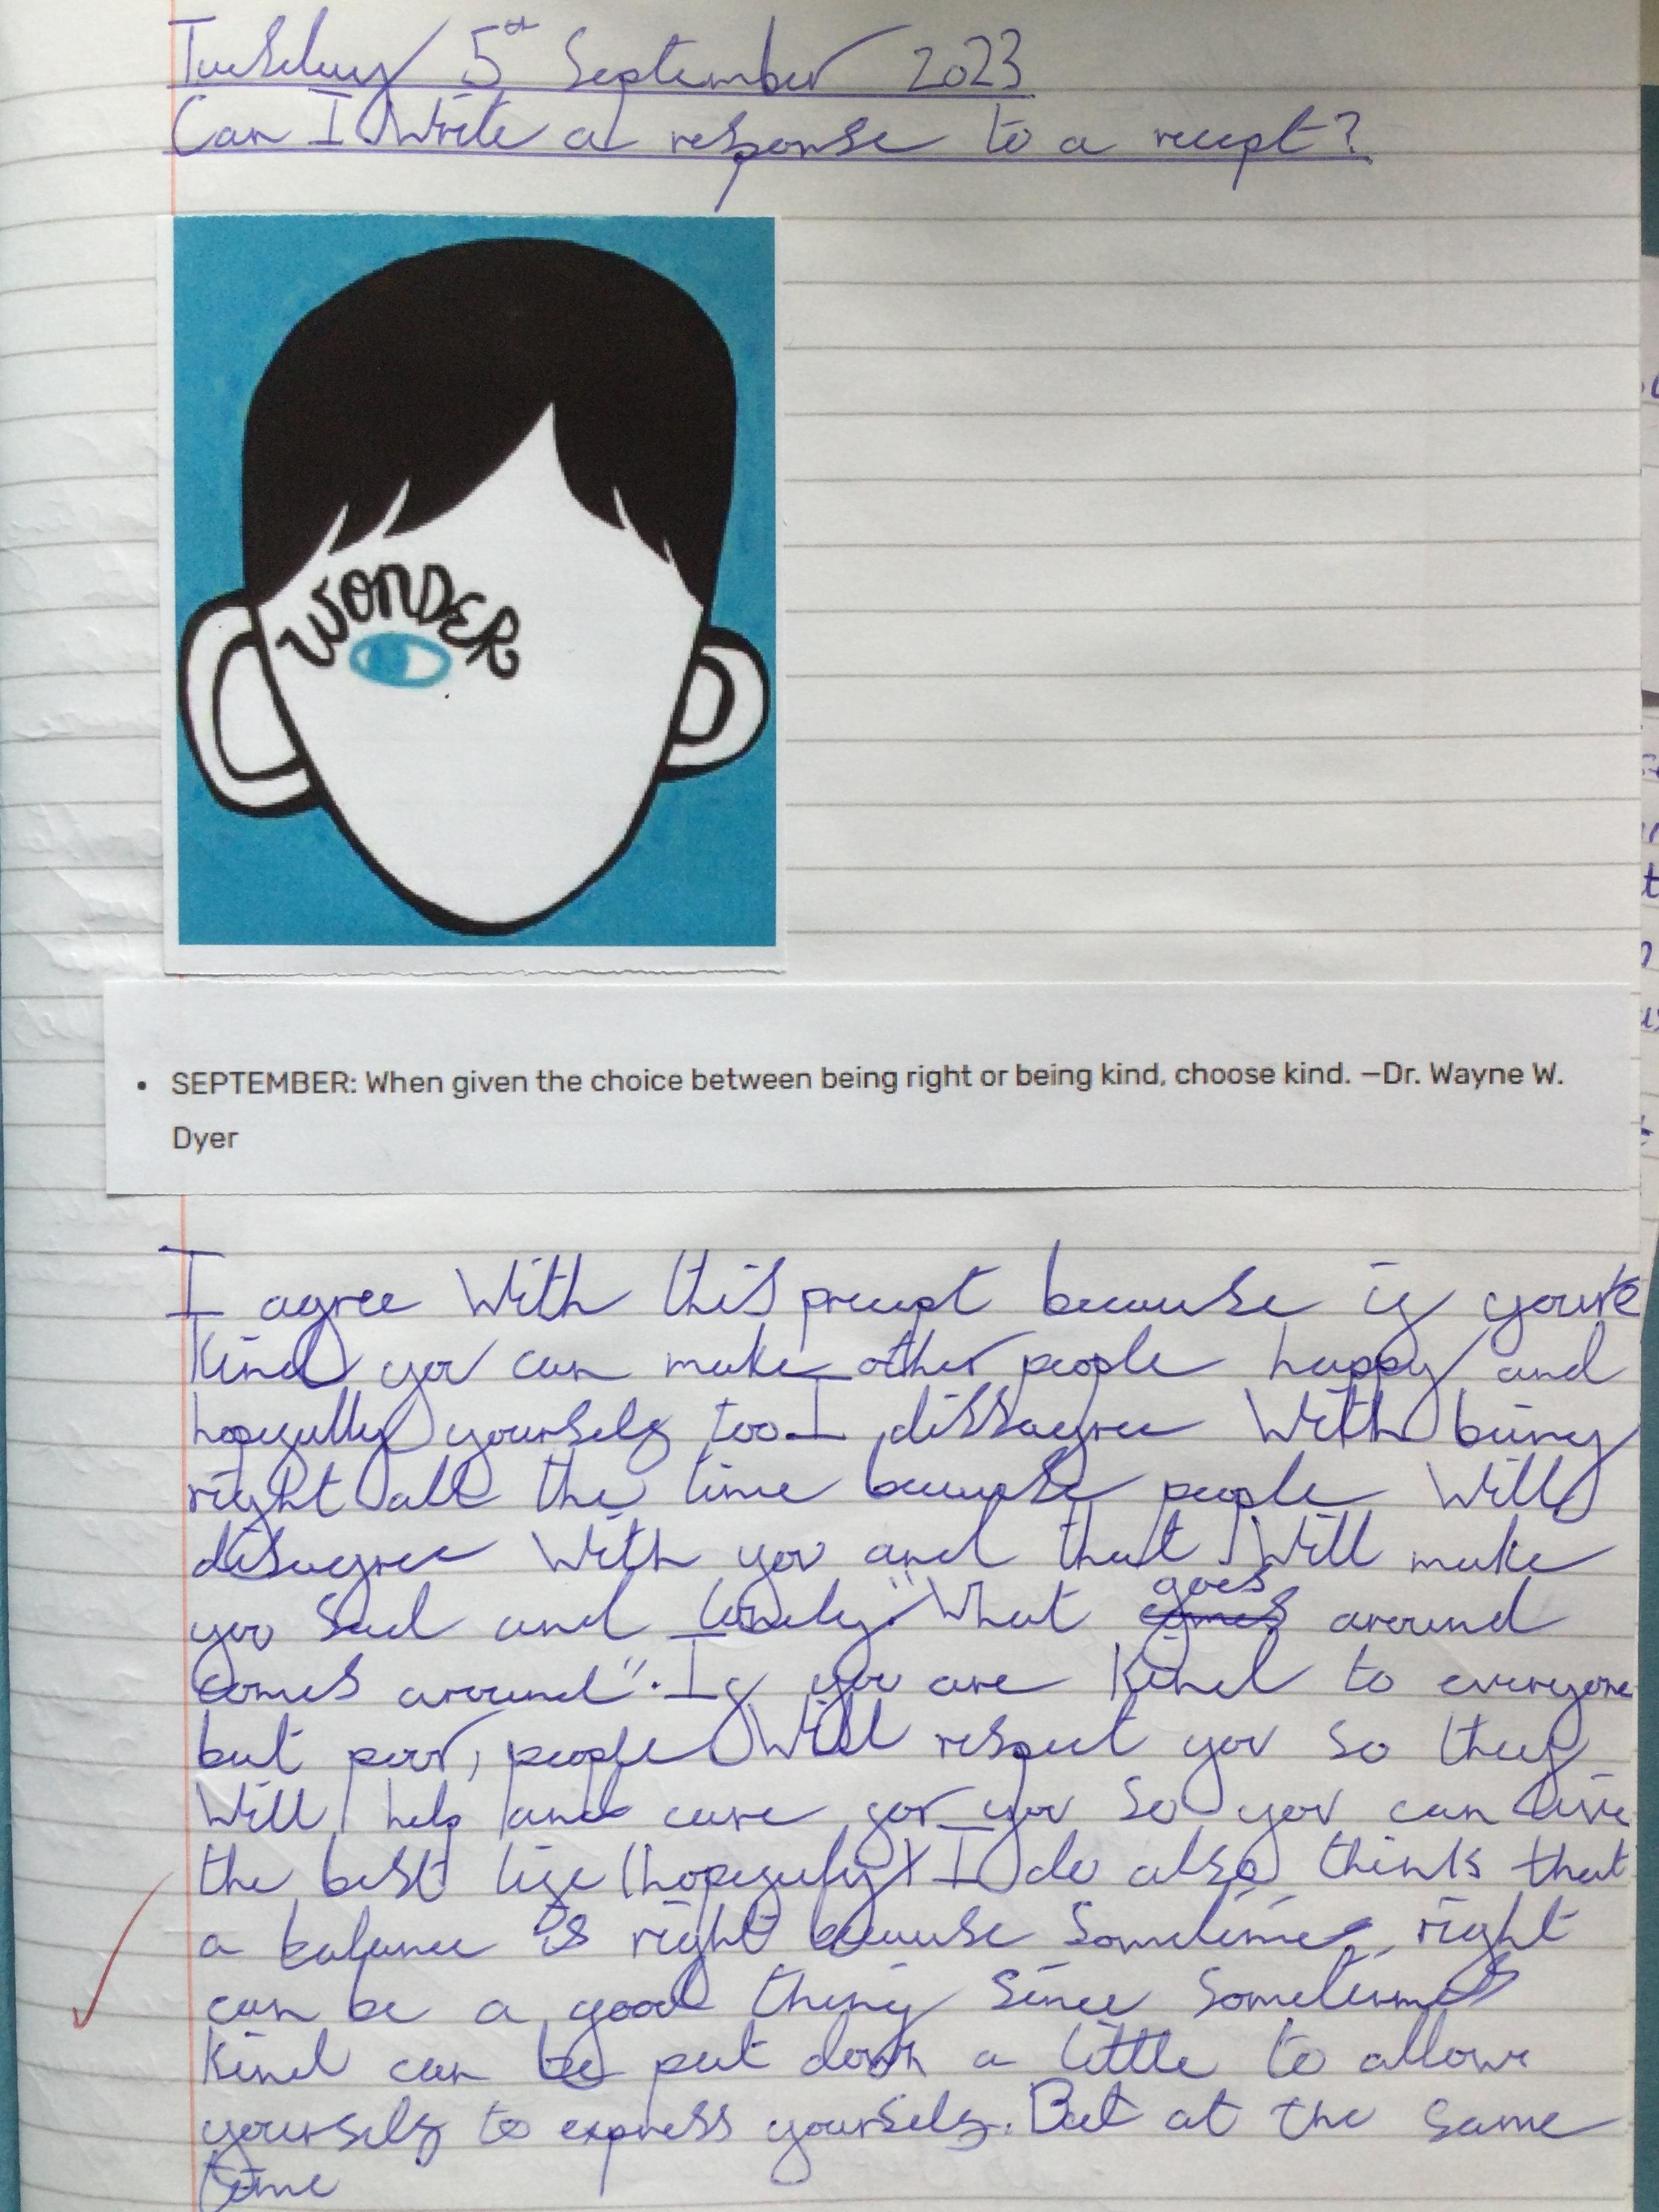 Tuesday 5th September 2023
Can I write a response to a recept?
WONDER
• SEPTEMBER: When given the choice between being right or being kind, choose kind. —Dr. Wayne W.
Dyer
I agree with this precept because if you're
kind you can make other people happy and
hopefully yourself too. I dissagree with being
right all the time because people will
disagree with you and that will make
you sad and lonely. "What goes around
comes around". If you are kind to everyone
but poor, people will respect you so they
will help and care for you so you can live
the best life (hopefuly). I do also thinks that
a balance is right because sometimes right
can be a good thing since sometimes
kind can be put down a little to allow
yourself to express yourself. But at the same
time